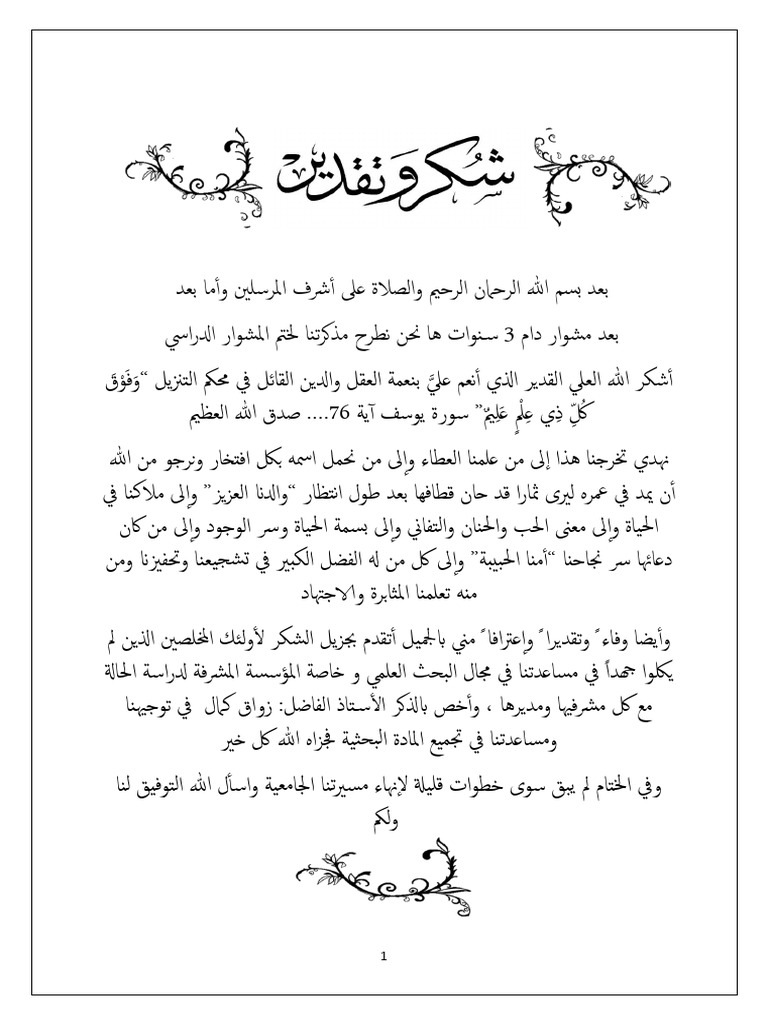 شُكر وَتقدير
بعد بسم الله الرحمان الرحيم والصلاة على أشرف المرسلين وأما بعد
بعد مشوار دام 3 سنوات ها نحن نطرح مذكرتنا لختم المشوار الدراسي
أشكر الله العلي القدير الذي أنعم عليَّ بنعمة العقل والدين القائل في محكم التنزيل “وَفَوْقَ
كُلِّ ذِي عِلْمٍ عَلِيمٌ” سورة يوسف آية 76.... صدق الله العظيم
نهدي تخرجنا هذا إلى من علمنا العطاء وإلى من نحمل اسمه بكل افتخار ونرجو من الله
أن يمد في عمره ليرى ثمارا قد حان قطافها بعد طول انتظار “والدنا العزيز” وإلى ملاكنا في
الحياة وإلى معنى الحب والحنان والتفاني وإلى بسمة الحياة وسر الوجود وإلى من كان
دعائها سر نجاحنا “أمنا الحبيبة” وإلى كل من له الفضل الكبير في تشجيعنا وتحفيزنا ومن
منه تعلمنا المثابرة والاجتهاد
وأيضا وفاء ً وتقديرا ً وإعترافا ً مني بالجميل أتقدم بجزيل الشكر لأولئك المخلصين الذين لم
يكلوا جهداً في مساعدتنا في مجال البحث العلمي و خاصة المؤسسة المشرفة لدراسة الحالة
مع كل مشرفيها ومديرها ، وأخص بالذكر الأستاذ الفاضل: زواق كمال في توجيهنا
ومساعدتنا في تجميع المادة البحثية فجزاه الله كل خير
وفي الختام لم يبق سوى خطوات قليلة لإنهاء مسيرتنا الجامعية واسأل الله التوفيق لنا
ولكم
1